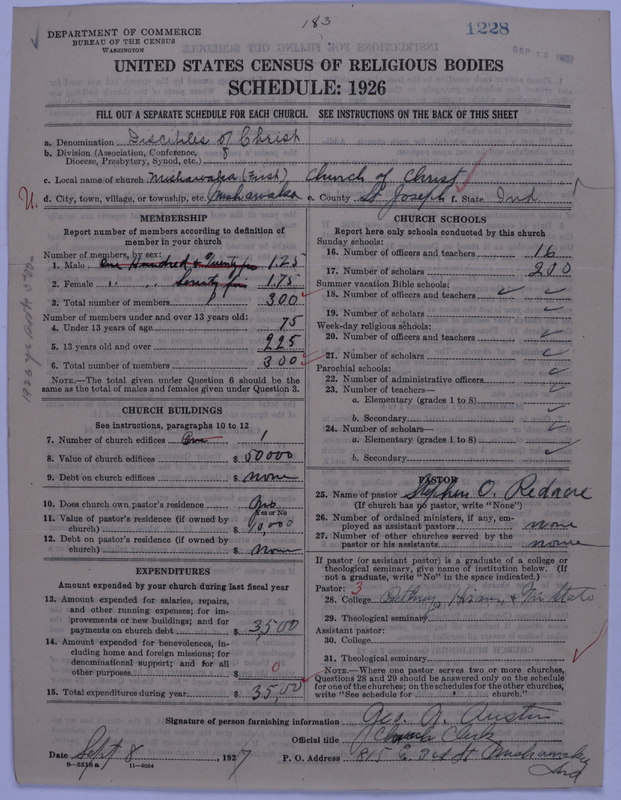 183
1228
DEPARTMENT OF COMMERCE
BUREAU OF THE CENSUS
WASHINGTON
UNITED STATES CENSUS OF RELIGIOUS BODIES
SCHEDULE: 1926
FILL OUT A SEPARATE SCHEDULE FOR EACH CHURCH. SEE INSTRUCTIONS ON THE BACK OF THIS SHEET
a. Denomination Disciples of Christ
b. Division (Association, Conference,
Diocese, Presbytery, Synod, etc.)
c. Local name of church Mishawaka (First) Church of Christ
U. d. City, town, village, or township, etc. Mishawaka e. County St. Joseph f. State Ind
MEMBERSHIP
Report number of members according to definition of
member in your church
Number of members, by sex:
1. Male One Hundred & Twenty five 125
2. Female " " Seventy five 175
3. Total number of members 300
Number of members under and over 13 years old:
4. Under 13 years of age 75
5. 13 years old and over 225
6. Total number of members 300
NOTE.—The total given under Question 6 should be the
same as the total of males and females given under Question 3.
CHURCH BUILDINGS
See instructions, paragraphs 10 to 12
7. Number of church edifices One 1
8. Value of church edifices $ 50000
9. Debt on church edifices $ none
10. Does church own pastor's residence?
Yes or No
11. Value of pastor's residence (if owned by
church) $ 10,000
12. Debt on pastor's residence (if owned by
church) $ none
EXPENDITURES
Amount expended by your church during last fiscal year
13. Amount expended for salaries, repairs,
and other running expenses; for im-
provements or new buildings; and for
payments on church debt $ 3,500
14. Amount expended for benevolences, in-
cluding home and foreign missions; for
denominational support; and for all
other purposes $ 0
15. Total expenditures during year $ 35,00
CHURCH SCHOOLS
Report here only schools conducted by this church
Sunday schools:
16. Number of officers and teachers 16
17. Number of scholars 200
Summer vacation Bible schools:
18. Number of officers and teachers
19. Number of scholars
Week-day religious schools:
20. Number of officers and teachers
21. Number of scholars
Parochial schools:
22. Number of administrative officers
23. Number of teachers—
a. Elementary (grades 1 to 8)
b. Secondary
24. Number of scholars—
a. Elementary (grades 1 to 8)
b. Secondary
PASTOR
25. Name of pastor Stephen O. Redacre
(If church has no pastor, write "None")
26. Number of ordained ministers, if any, em-
ployed as assistant pastors none
27. Number of other churches served by the
pastor or his assistants none
If pastor (or assistant pastor) is a graduate of a college or
theological seminary, give name of institution below. (If
not a graduate, write "No" in the space indicated.)
Pastor: 3
28. College Bethany, Hiram, & Tri State
29. Theological seminary
Assistant pastor:
30. College
31. Theological seminary
NOTE.—Where one pastor serves two or more churches,
Questions 28 and 29 should be answered only on the schedule
for one of the churches; on the schedules for the other churches,
write "See schedule for church."
Signature of person furnishing information Geo. N. Austin
Official title Church Clerk
Date Sept 8, 1927 P. O. Address 815 E 3rd St Mishawaka
Ind
8—5518a 11—9054